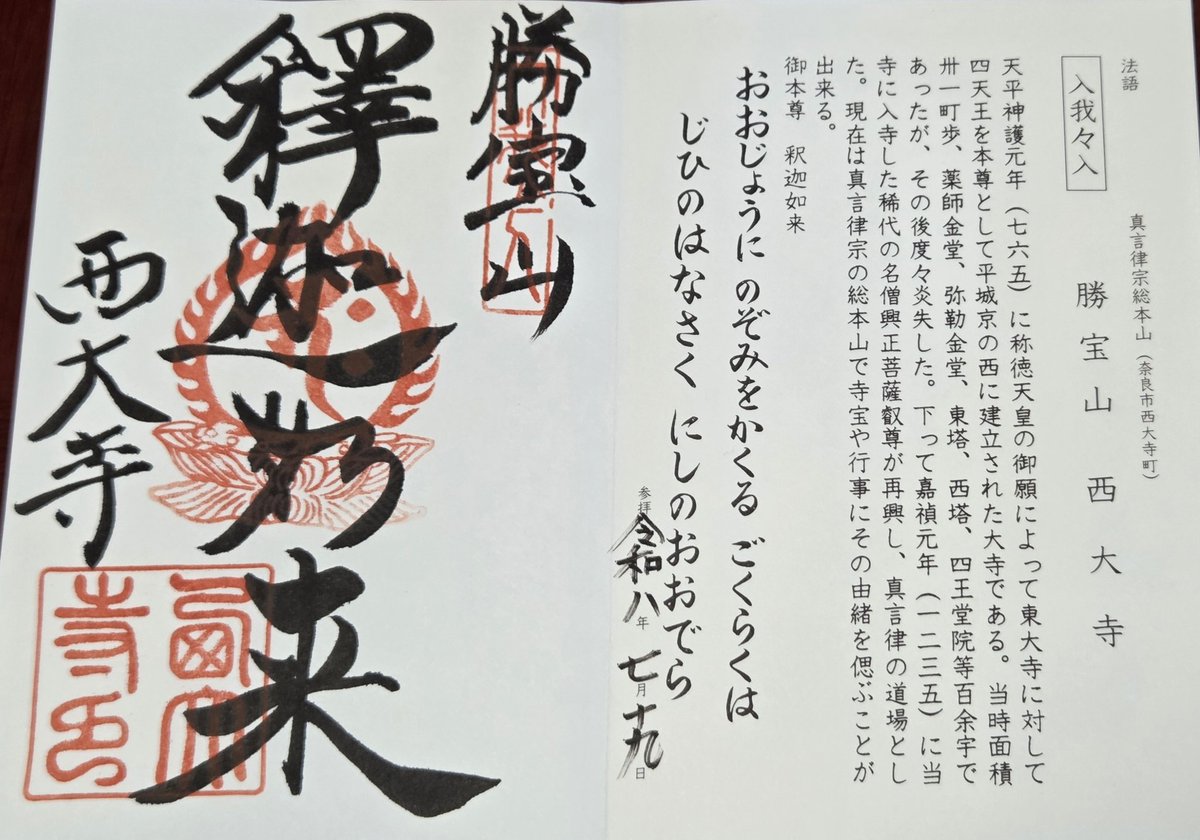 法語
入我々入
真言律宗総本山(奈良市西大寺町)
勝宝山 西大寺
天平神護元年(七六五)に称徳天皇の御願によって東大寺に対して
四天王を本尊として平城京の西に建立された大寺である。当時面積
卅一町歩、薬師金堂、弥勒金堂、東塔、西塔、四王堂院等百余宇で
あったが、その後度々炎失した。下って嘉禎元年(一二三五)に当
寺に入寺した稀代の名僧興正菩薩叡尊が再興し、真言律の道場とし
た。現在は真言律宗の総本山で寺宝や行事にその由緒を偲ぶことが
出来る。
御本尊 釈迦如来
おおじょうに のぞみをかくる ごくらくは
じひのはなさく にしのおおでら
参拝 令和八年 七月十九日
勝宝山
釋迦如来
西大寺
西大寺印